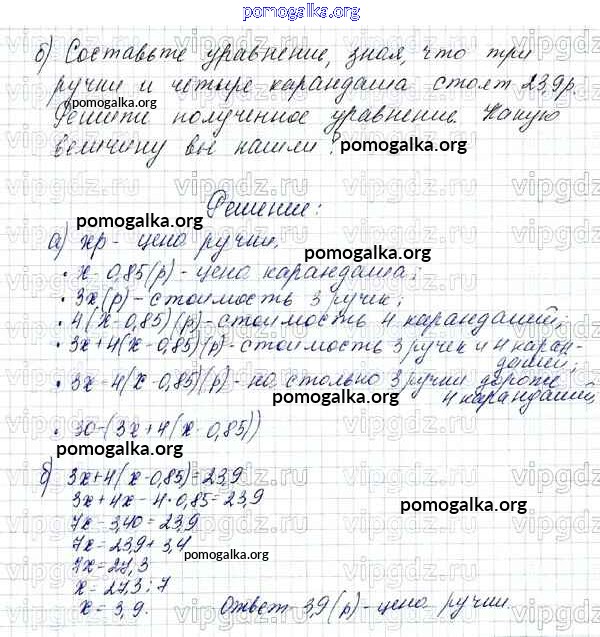 pomogalka.org
б) Составьте уравнение, зная, что три
ручки и четыре карандаша стоят 23,9р.
pomogalka.org
Решити полученное уравнение. Какую
величину вы нашли?
pomogalka.org
Решение:
pomogalka.org
а) хр - цена ручки.
pomogalka.org
• х - 0,85(р) - цена карандаша;
• 3х(р) - стоимость 3 ручек;
• 4(х - 0,85)(р) - стоимость 4 карандашей;
• 3х + 4(х - 0,85)(р) - стоимость 3 ручек и 4 каран-
дашей;
• 3х - 4(х - 0,85)(р) - на столько 3 ручки дороже
4 карандашей
pomogalka.org
• 30 - (3х + 4(х - 0,85))
pomogalka.org
б) 3х + 4(х - 0,85) = 23,9
3х + 4х - 4 • 0,85 = 23,9
pomogalka.org
7х - 3,40 = 23,9
7х = 23,9 + 3,4
pomogalka.org
7х = 27,3
х = 27,3 : 7
х = 3,9.
Ответ 3,9(р) - цена ручки.
vipgdz.ru